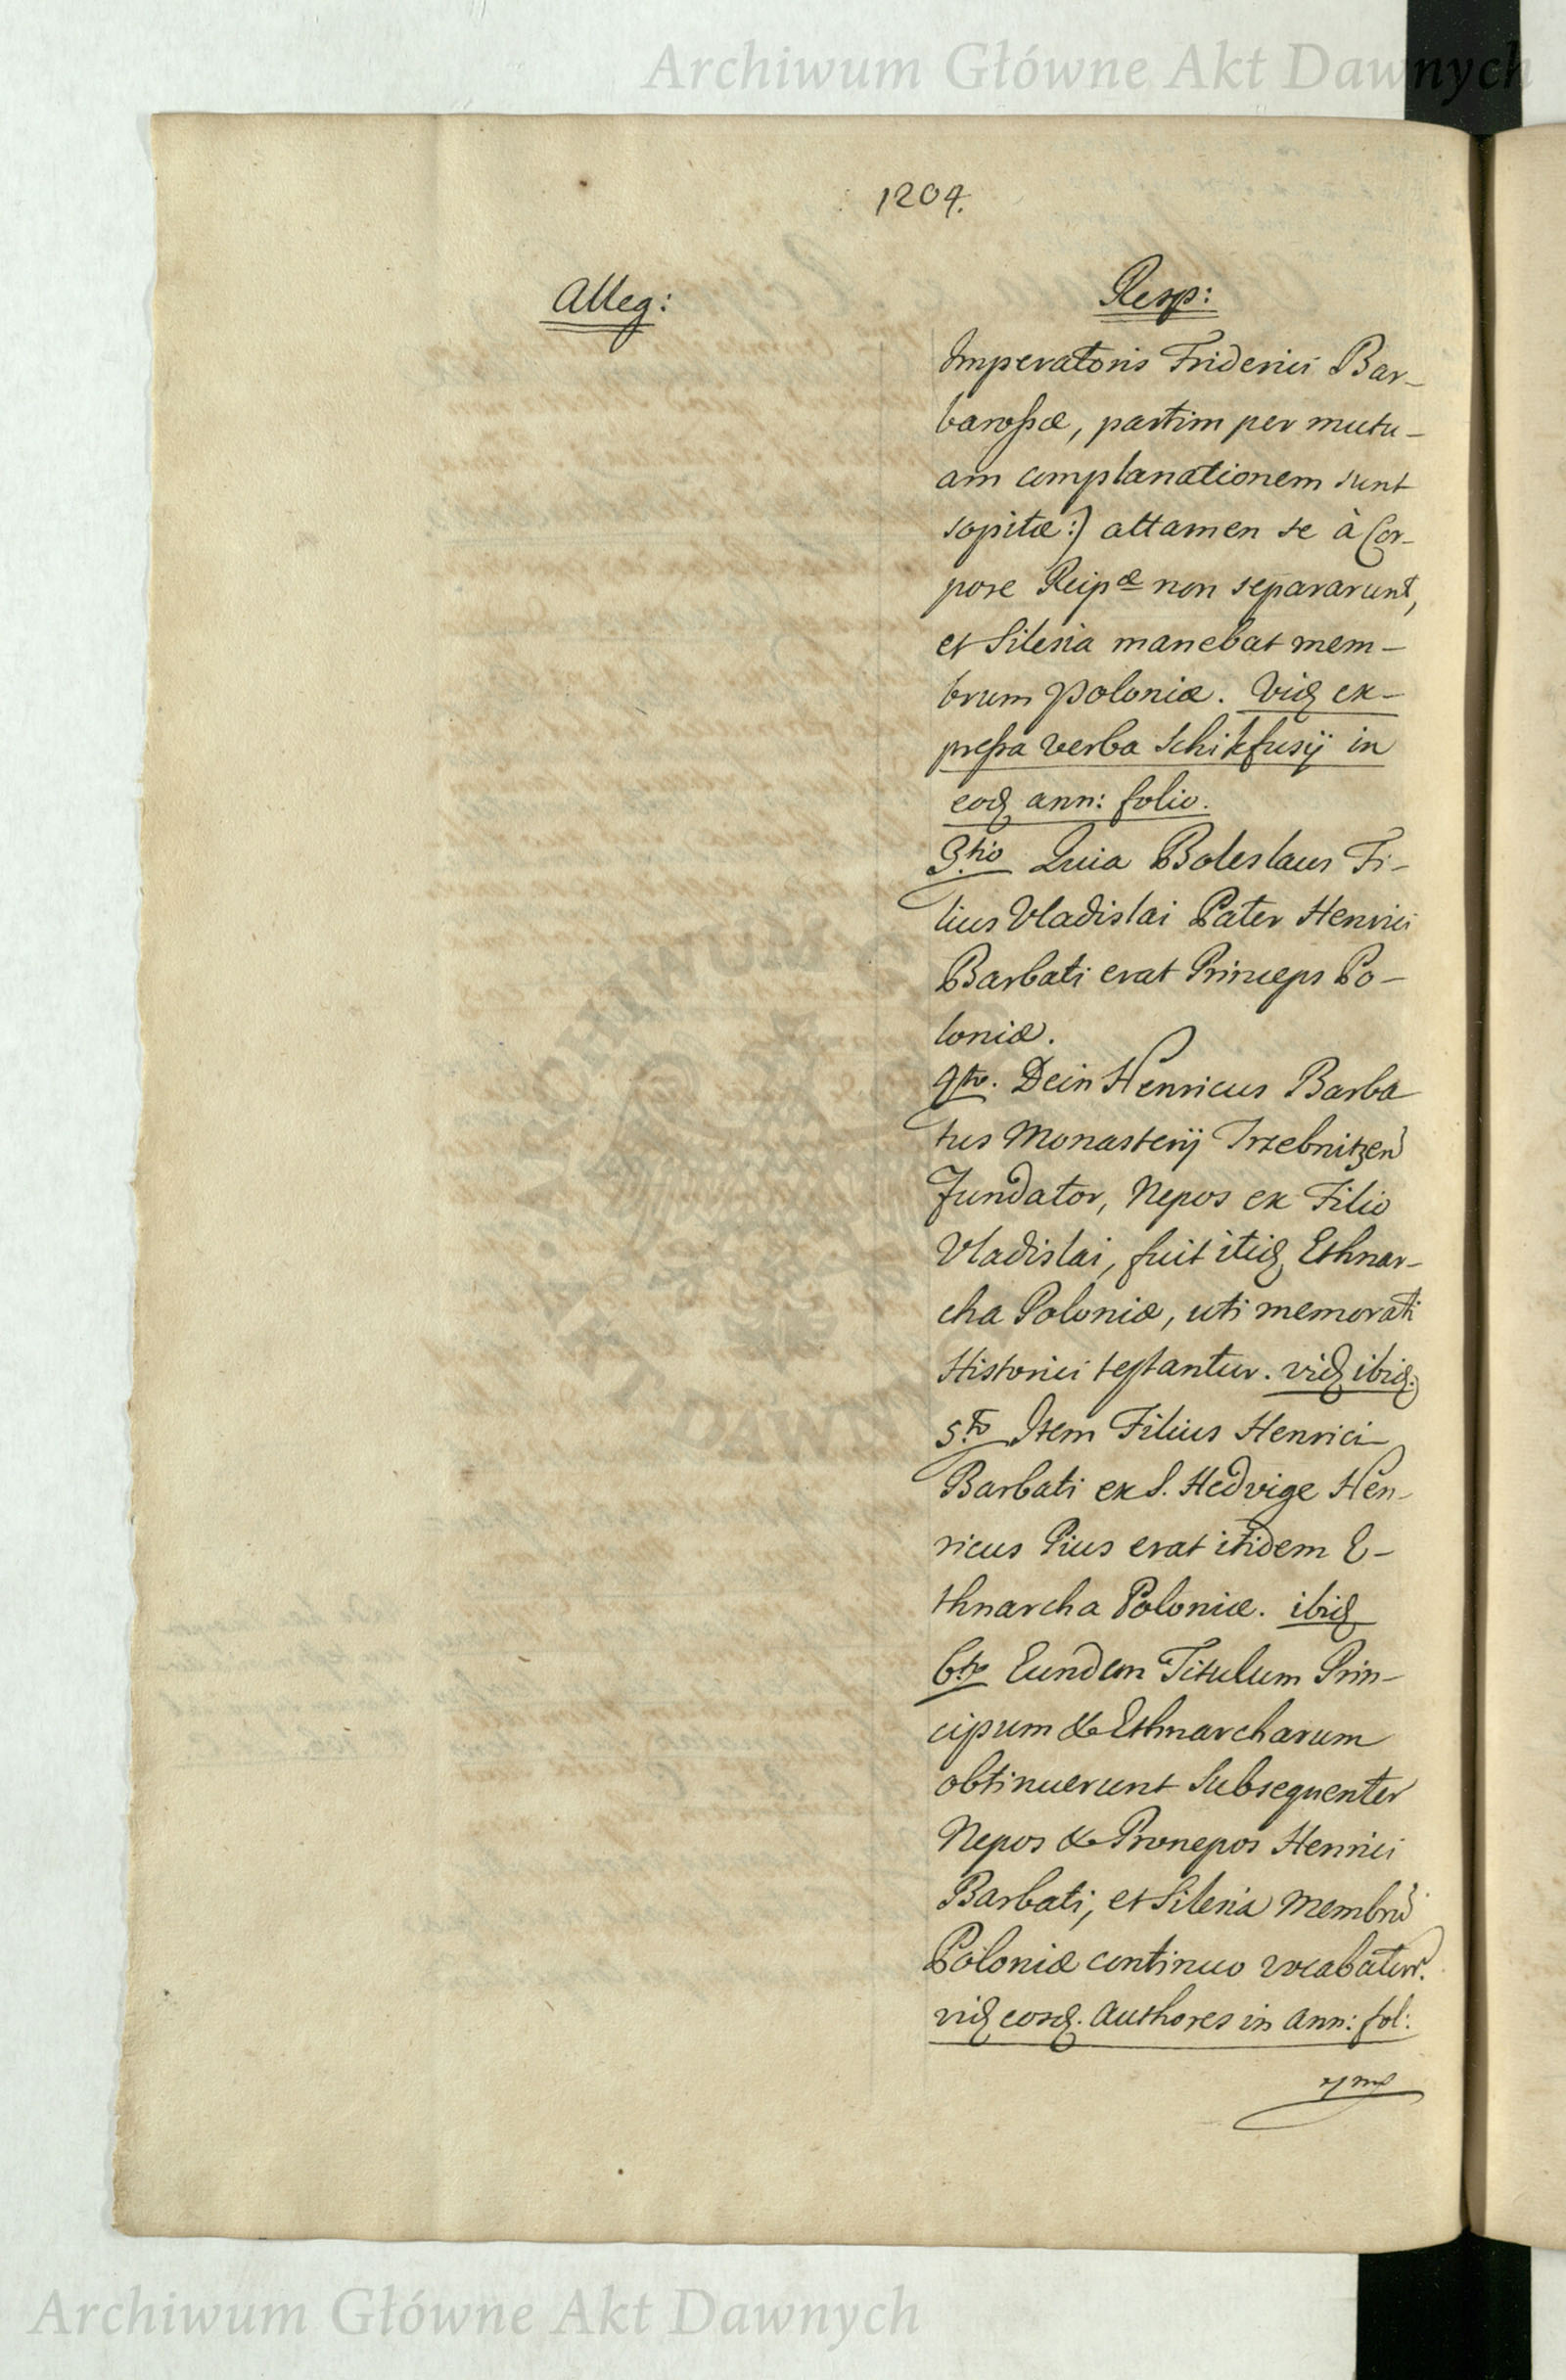 Archiwum Główne Akt Dawnych
1204.
Alleg:
Resp:
Imperatoris Friderici Bar-
barossæ, partim per mutu-
am complanationem sunt
sopitæ:) attamen se à Cor-
pore Reipæ non separarunt,
et Silesia manebat mem-
brum Poloniæ. Vid ex-
pressa verba Schikfusij in
eod ann: folio.
3tio Quia Boleslaus Fi-
lius Vladislai Pater Henrici
Barbati erat Princeps Po-
loniæ.
4to. Dein Henricus Barba
tus Monasterij Trzebnitzen
Fundator, Nepos ex Filio
Vladislai, fuit itid Ethnar-
cha Poloniæ, uti memorati
Historici testantur. vid ibid.
5to Item Filius Henrici
Barbati ex S. Hedvige Hen-
ricus Pius erat itidem E-
thnarcha Poloniæ. ibid
6to Eundem Titulum Prin-
cipum & Ethnarcharum
obtinuerunt Subsequenter
Nepos & Pronepos Henrici
Barbati, et Silesia Membrū
Poloniæ continuo vocabatur.
vid eosd. Authores in ann: fol:
7mo
ARCHIWUM
AKT DAWNYCH
Archiwum Główne Akt Dawnych